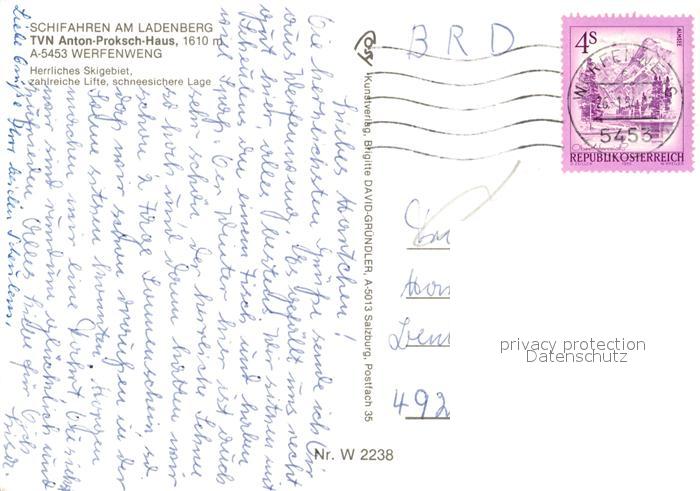 SCHIFAHREN AM LADENBERG
TVN Anton-Proksch-Haus, 1610 m
A-5453 WERFENWENG
Herrliches Skigebiet,
zahlreiche Lifte, schneesichere Lage
Die herzlichsten Grüße sende ich Dir
aus Werfenweng. Es gefällt uns recht
gut hier, alles bestens. Wir sitzen mit
an einem Tisch und haben
viel Spaß. Der Winter hier ist auch
sehr schön, der herrliche Schnee
so hoch und dann hatten wir
schon 2 Tage Sonnenschein so
daß wir schon draußen in der
Sonne sitzen konnten. Morgen
wir sind rundum glücklich und
zufrieden. Alles Liebe für Dich
Liebe Grüße
Kunstverlag, Brigitte DAVID-GRÜNDLER, A-5013 Salzburg, Postfach 35
Nr. W 2238
BRD
4S
ALMSEE
REPUBLIK ÖSTERREICH
5453
492
privacy protection
Datenschutz